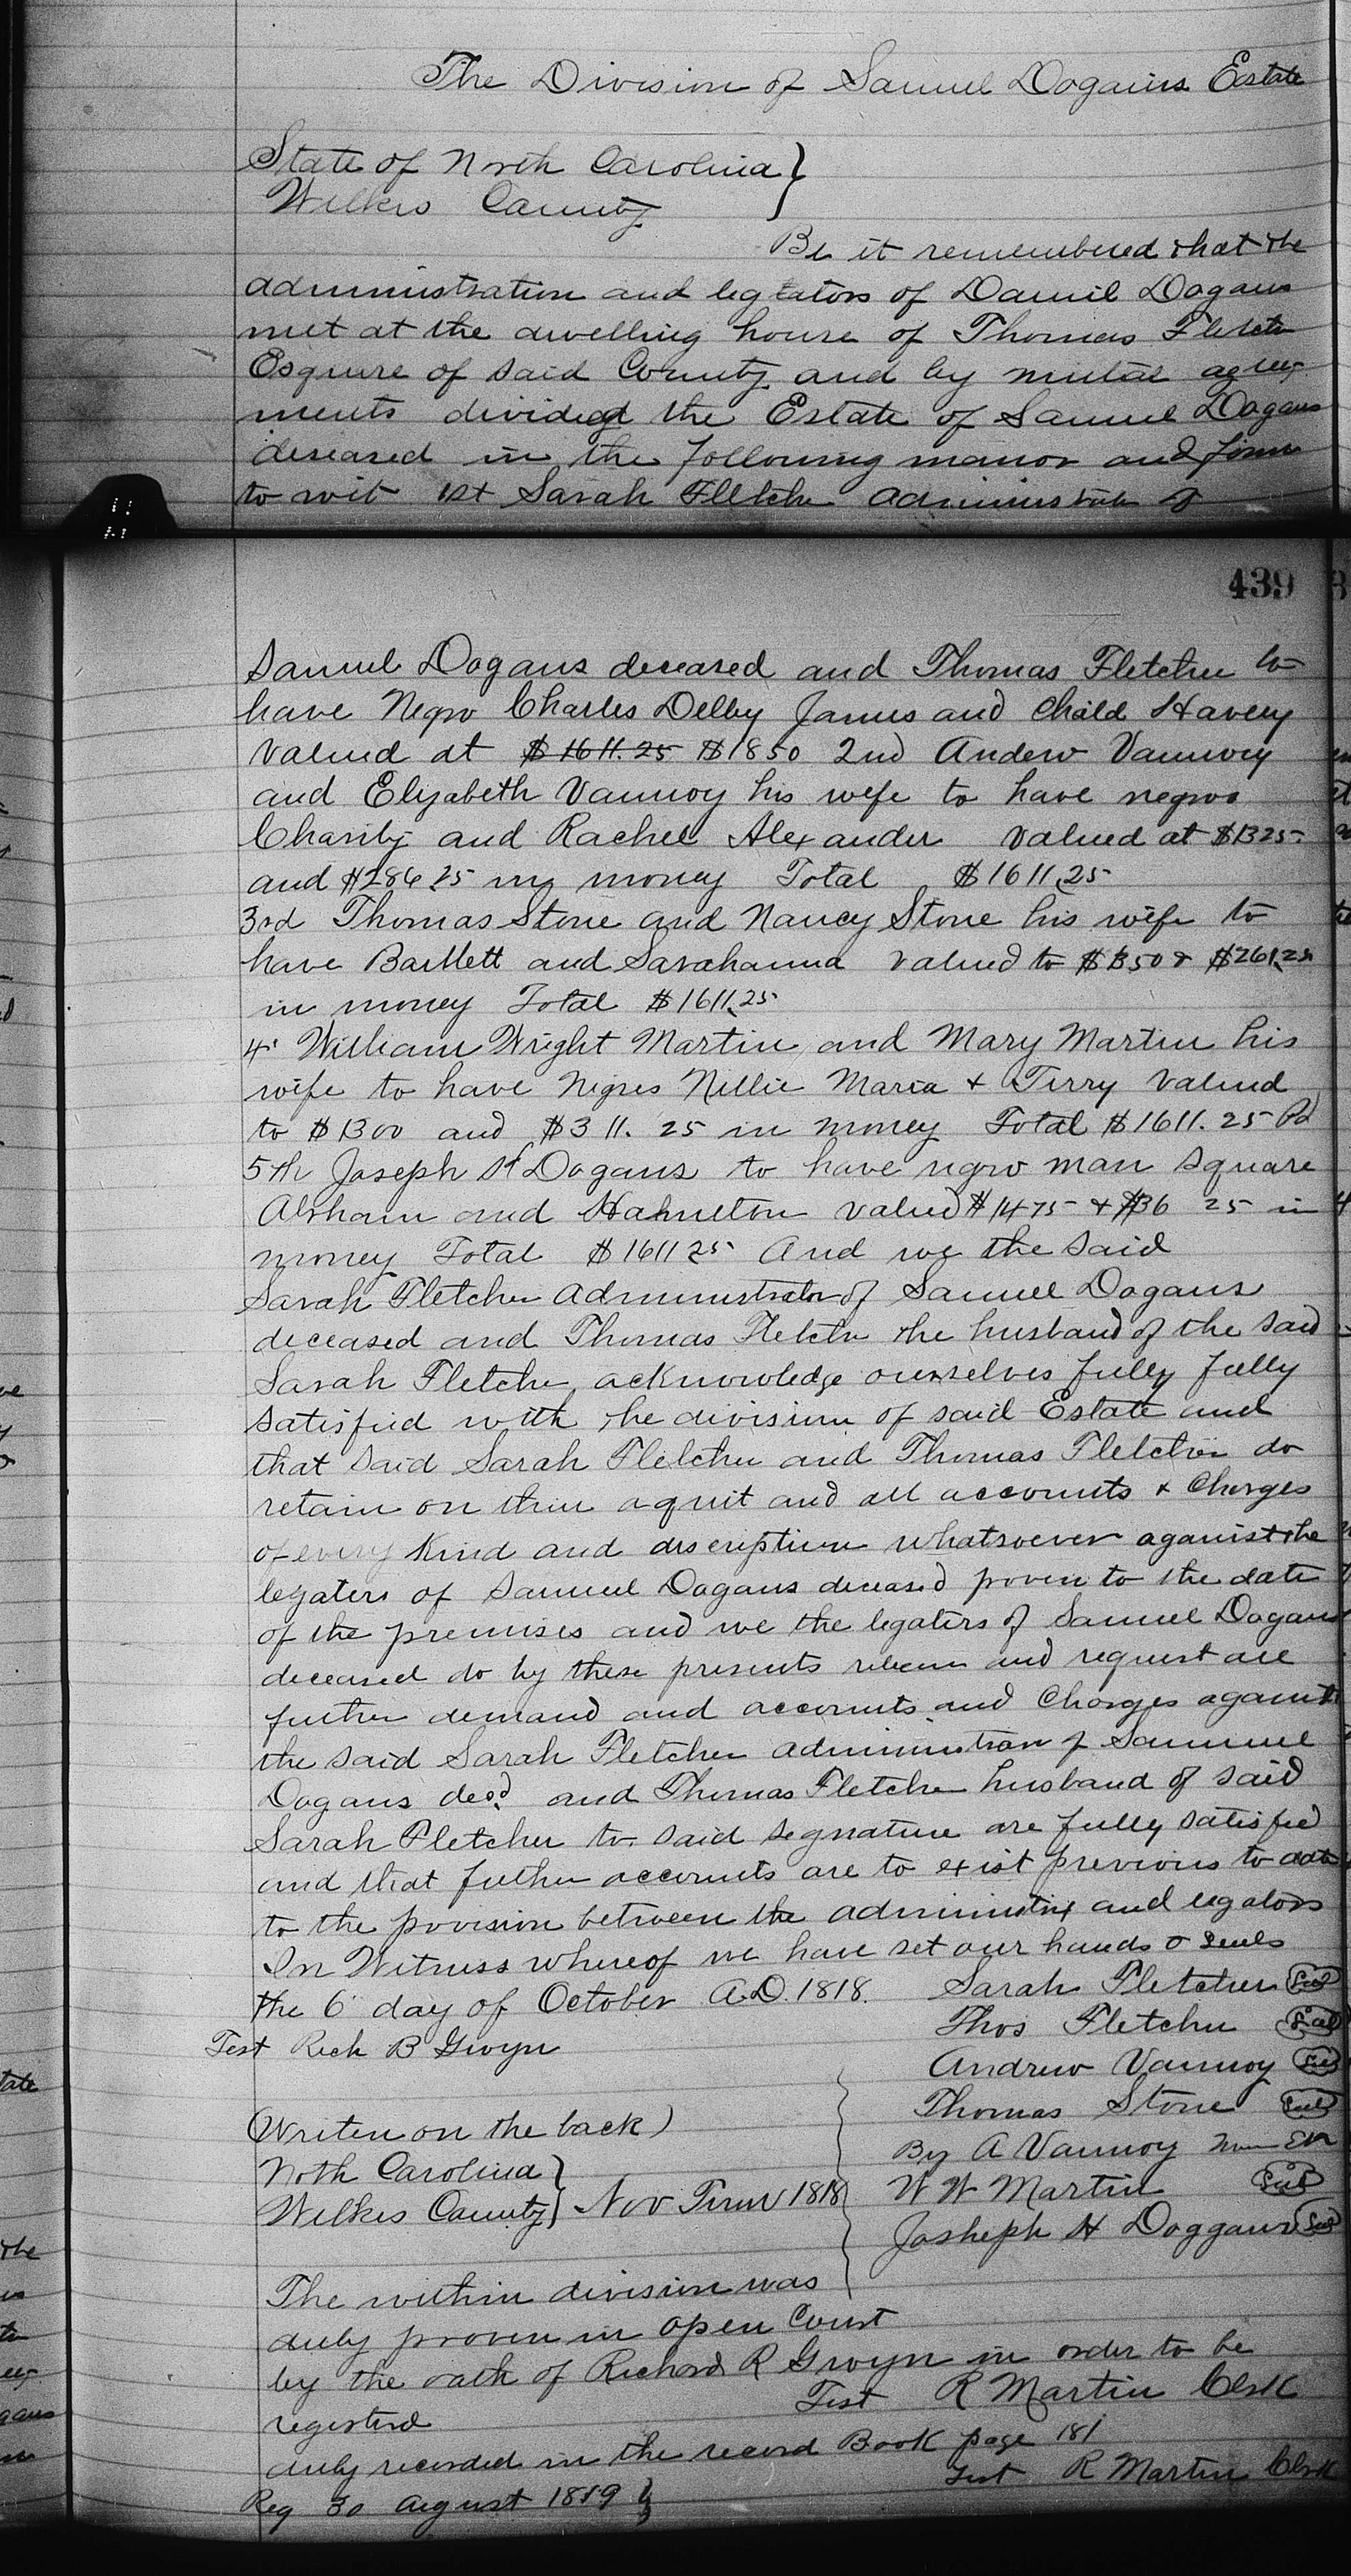 The Division of Samuel Dogains Estate
State of North Carolina }
Wilkes County
Be it remembered that the
administration and legtators of Daniel Dogans
met at the dwelling house of Thomas Fletcher
Esqure of said County and by mutal agree
ments divided the Estate of Samuel Dogans
deseased in the following manor and form
to wit 1st Sarah Fletcher Administrator of
439
Samuel Dogans deceased and Thomas Fletcher to
have Negro Charles Delby James and Child Havery
valued at $1611.25 $1850 2nd Andew Vannoy
and Elyzabeth Vannoy his wife to have negros
Charity and Rachel Alexander valued at $1325.
and $286.25 in money Total $1611,25
3rd Thomas Stone and Nancy Stone his wife to
have Bartlett and Sarahanna valued to $1350 & $261,25
in money Total $1611,25
4th William Wright Martin and Mary Martin his
wife to have Negres Nellie Maria + Jerry valued
to $1300 and $311.25 in money Total $1611.25 Pd
5th Joseph H Dogans to have negro man Square
Abham and Hamelton valued $1475 + $136 25 in
money Total $1611 25 And we the said
Sarah Fletcher Administrator of Samuel Dogans
deceased and Thomas Fletcher the husband of the said
Sarah Fletcher acknowledge ourselves fully fully
satisfied with the division of said Estate and
that said Sarah Fletcher and Thomas Fletcher do
retain on thim aquit and all accounts + Charges
of every Kind and discription whatsoever against the
legaters of Samuel Dogans deceased proven to the date
of the premises and we the legaters of Samuel Dogans
deceased do by these presents and request all
further demand and accounts and Charges against
the said Sarah Fletcher administration of Sammuel
Dogans decd. and Thomas Fletcher husband of said
Sarah Fletcher to said signature are fully satisfied
and that futher accounts are to exist previous to date
to the provision between the administrix and legators
In Witness whereof we have set our hands & seals
the 6 day of October A.D. 1818. Sarah Fletcher Seal
Thos Fletcher Seal
Test Rich B Gwyn
Andrew Vannoy Seal
Thomas Stone Seal
(Writen on the back)
By A Vannoy
Noth Carolina }
Wilkes County } Nov Term 1818
W W Martin Seal
Josheph H Doggans Seal
The within division was
duly proven in open Court
by the oath of Richard R Gwyn in order to be
registerd
Test R Martin Clrk
duly recorded in the record Book page 181
Test R Martin Clrk
Reg 30 August 1819 }